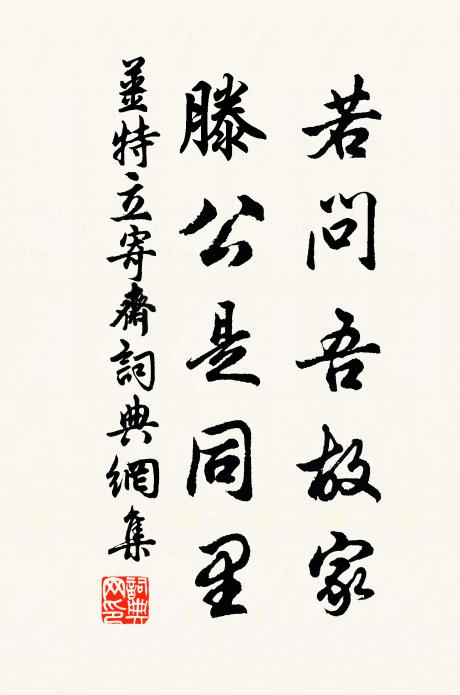 若問吾故家
滕公是同里
薑特立寄齋詞典網集
詞典網印